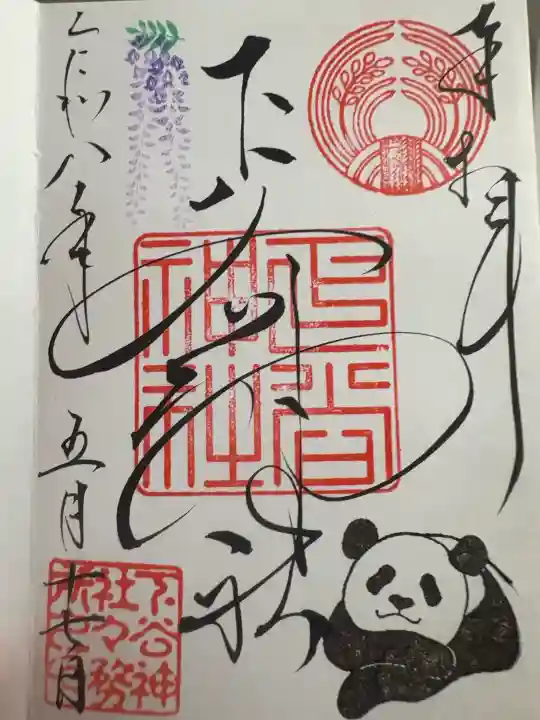 奉拝
下谷神社
下谷
神社
令和八年五月十七日
下谷神
社々務